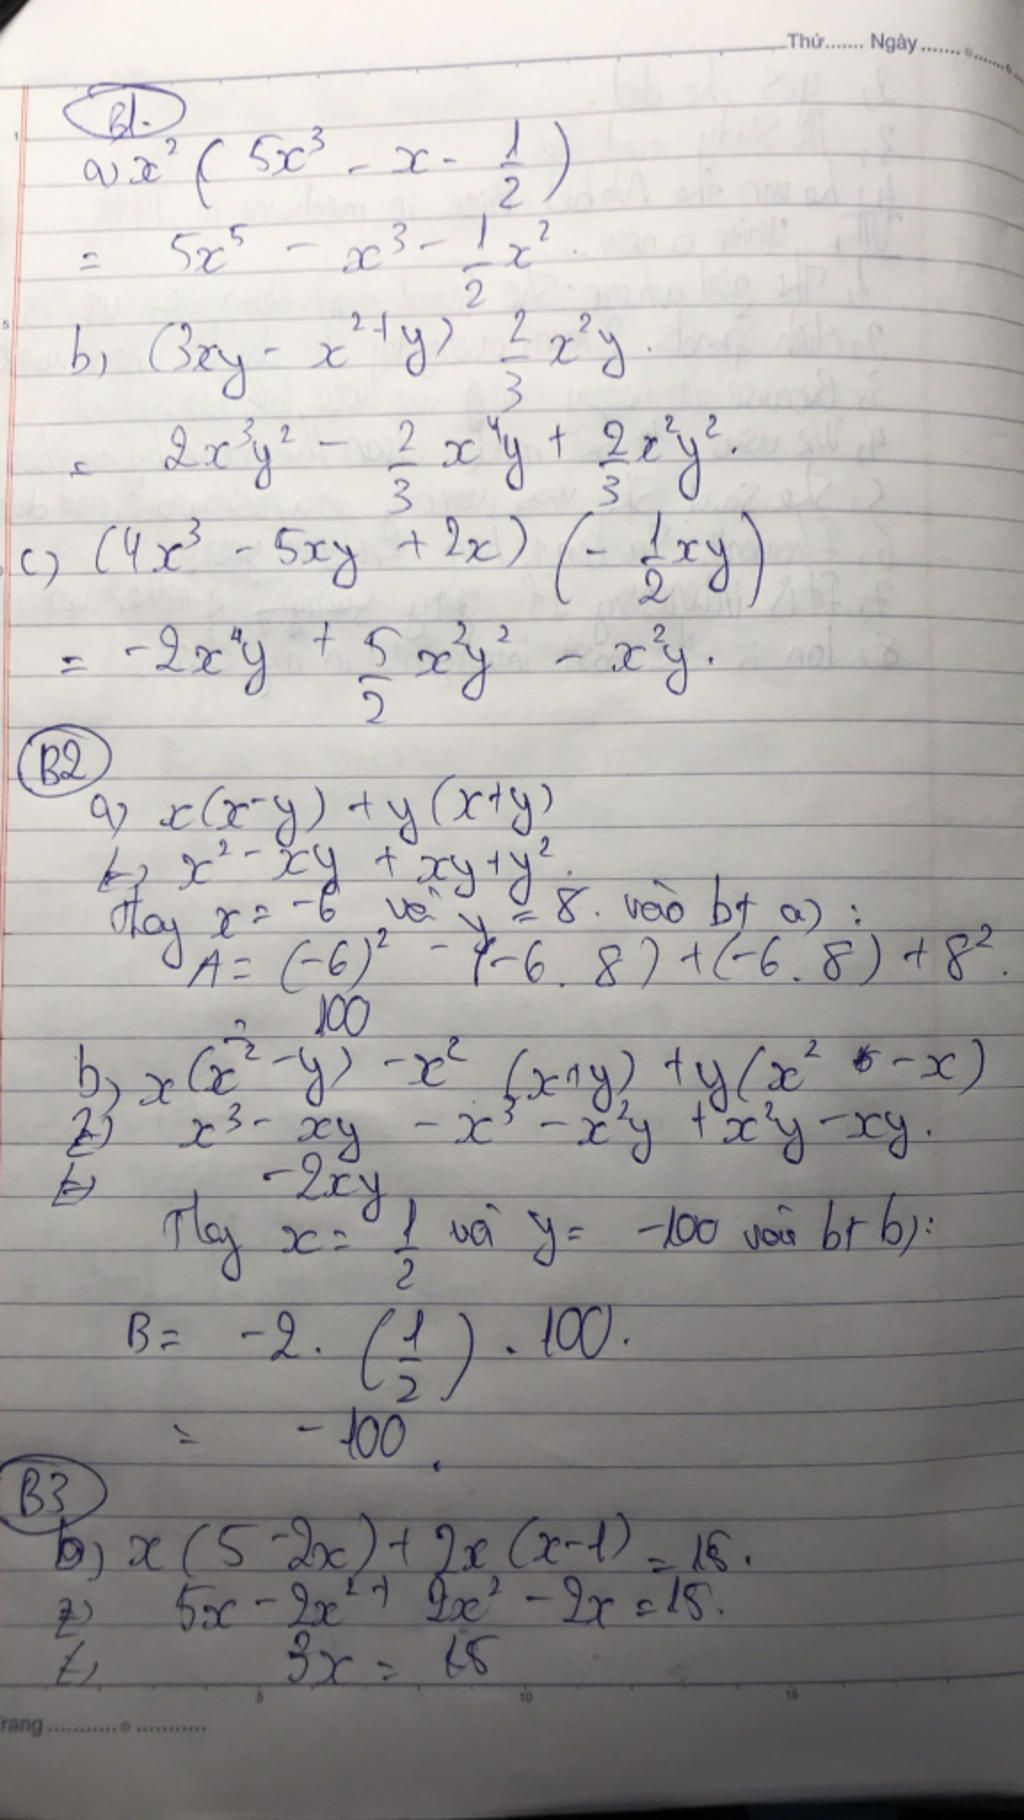 Thứ....... Ngày.......
B1.
a) x² ( 5x³ - x - 1/2 )
= 5x⁵ - x³ - 1/2 x².
b) (3xy - x² + y) 2/3 x²y.
= 2x³y² - 2/3 x⁴y + 2/3 x²y².
c) (4x³ - 5xy + 2x) (- 1/2 xy)
= -2x⁴y + 5/2 x²y² - x²y.
B2
a) x(x-y) + y(x+y)
x² - xy + xy + y².
Thay x = -6 và y = 8. vào bt a) :
A = (-6)² - (-6 . 8) + (-6 . 8) + 8².
100
b) x(x² - y) - x² (x+y) + y(x² - x)
x³ - xy - x³ - x²y + x²y - xy.
-2xy
Thay x = 1/2 và y = -100 vào bt b):
B = -2 . (1/2) . 100.
= -100.
B3
x(5 - 2x) + 2x(x-1) = 15.
5x - 2x² + 2x² - 2x = 15.
3x = 15
5 10 15
rang ...........